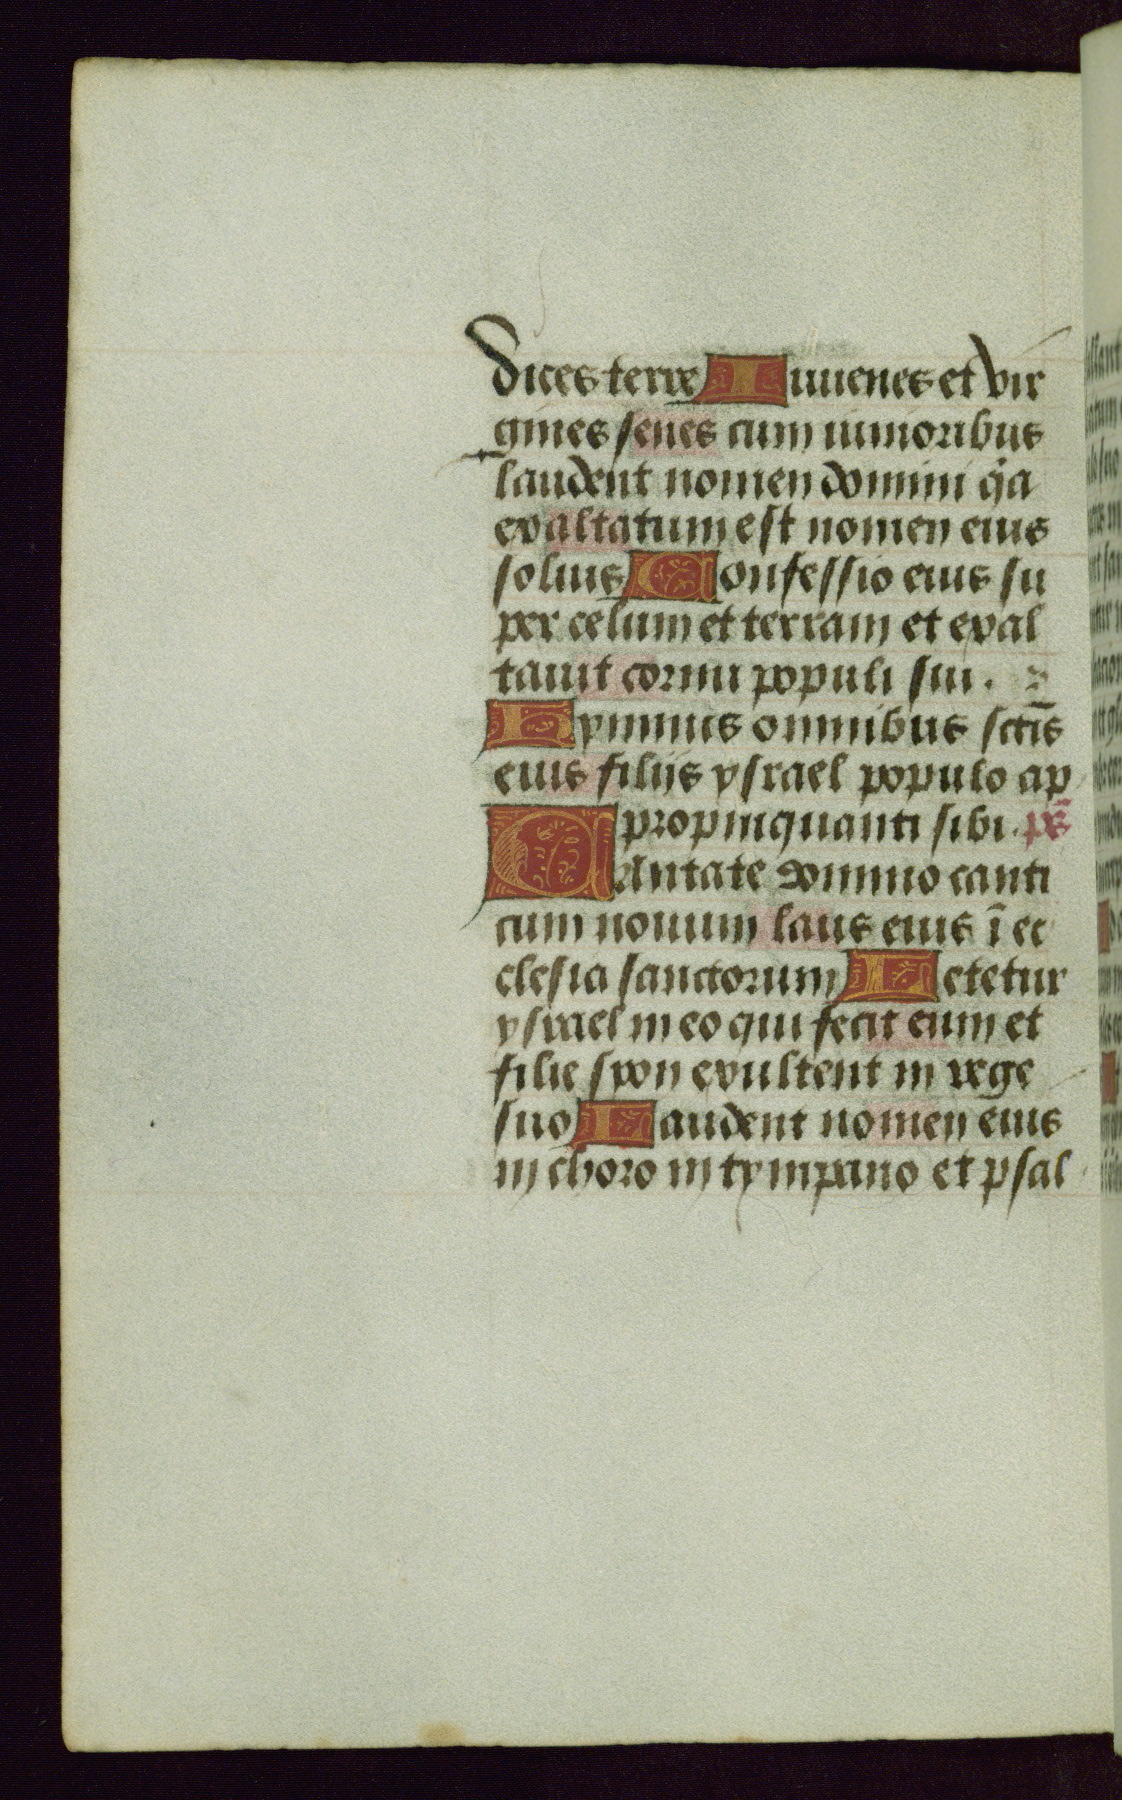 dices terre Iuuenes et vir
gines senes cum iunioribus
laudent nomen domini q̇a
exaltatum est nomen eius
solius Confessio eius su
per celum et terram et exal
tauit cornu populi sui .
Hymnus omnibus sctı̄s
eius filijs ysrael populo ap
propinquanti sibi . ps̄
Cantate domino canti
cum nouum laus eius ī ec
clesia sanctorum Letetur
ysrael in eo qui fecit eum et
filie syon exultent in rege
suo Laudent nomen eius
in choro in tympano et psal